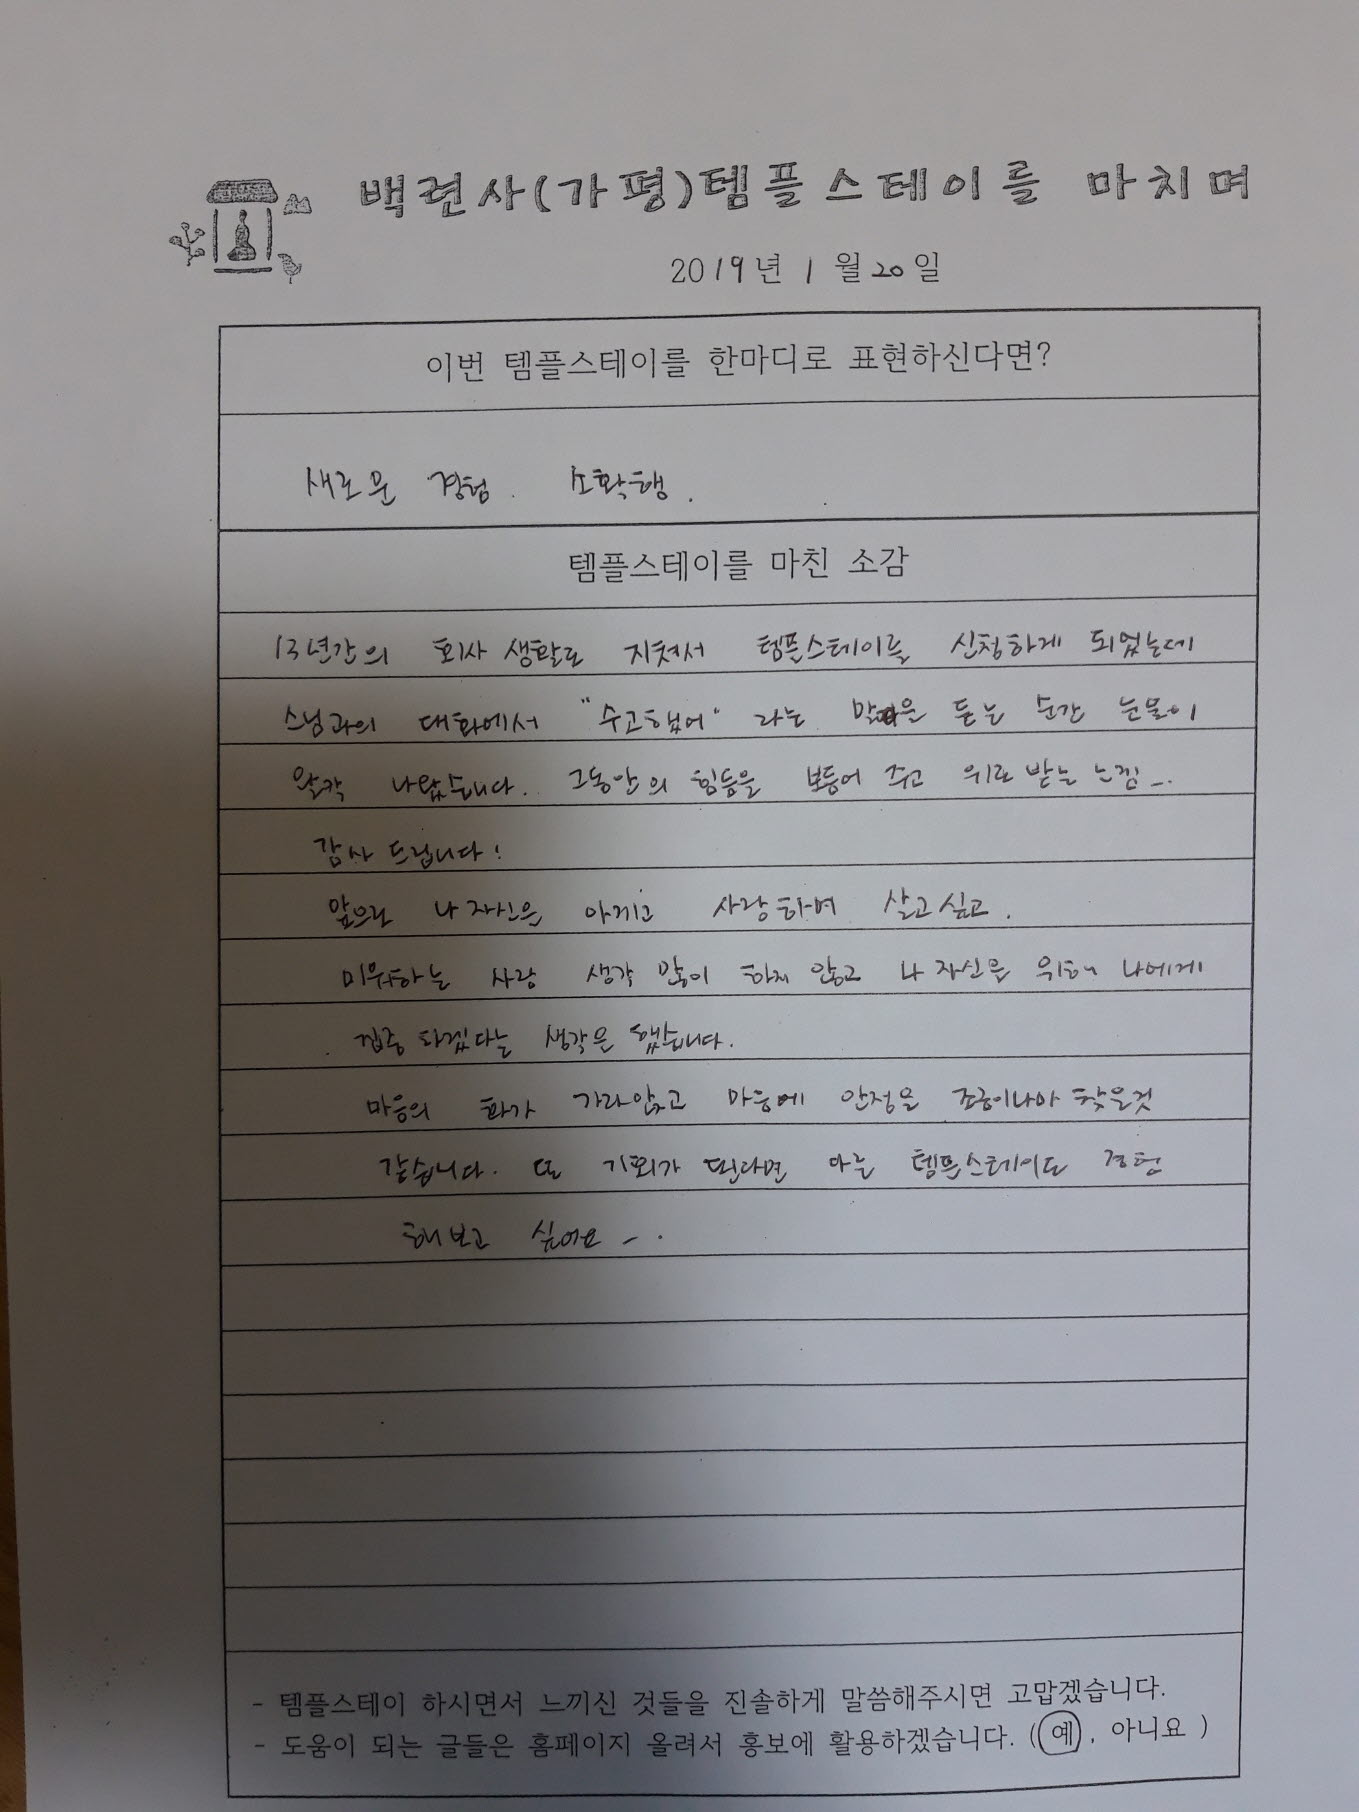 백련사(가평)템플스테이를 마치며
2019년 1월 20일
이번 템플스테이를 한마디로 표현하신다면?
새로운 경험. 소확행.
템플스테이를 마친 소감
13년간의 회사 생활로 지쳐서 템플스테이를 신청하게 되었는데
스님과의 대화에서 "수고했어" 라는 말을 듣는 순간 눈물이
왈칵 나왔습니다. 그동안의 힘듬을 보듬어 주고 위로 받는 느낌...
감사 드립니다!
앞으로 나 자신을 아끼고 사랑하며 살고 싶고.
미워하는 사람 생각 많이 하지 않고 나 자신을 위해 나에게
집중 하겠다는 생각을 했습니다.
마음의 화가 가라앉고 마음에 안정을 조금이나마 찾을것
같습니다. 또 기회가 된다면 다른 템플스테이도 경험
해보고 싶어요 ㅡ.
- 템플스테이 하시면서 느끼신 것들을 진솔하게 말씀해주시면 고맙겠습니다.
- 도움이 되는 글들은 홈페이지 올려서 홍보에 활용하겠습니다. (예, 아니요)